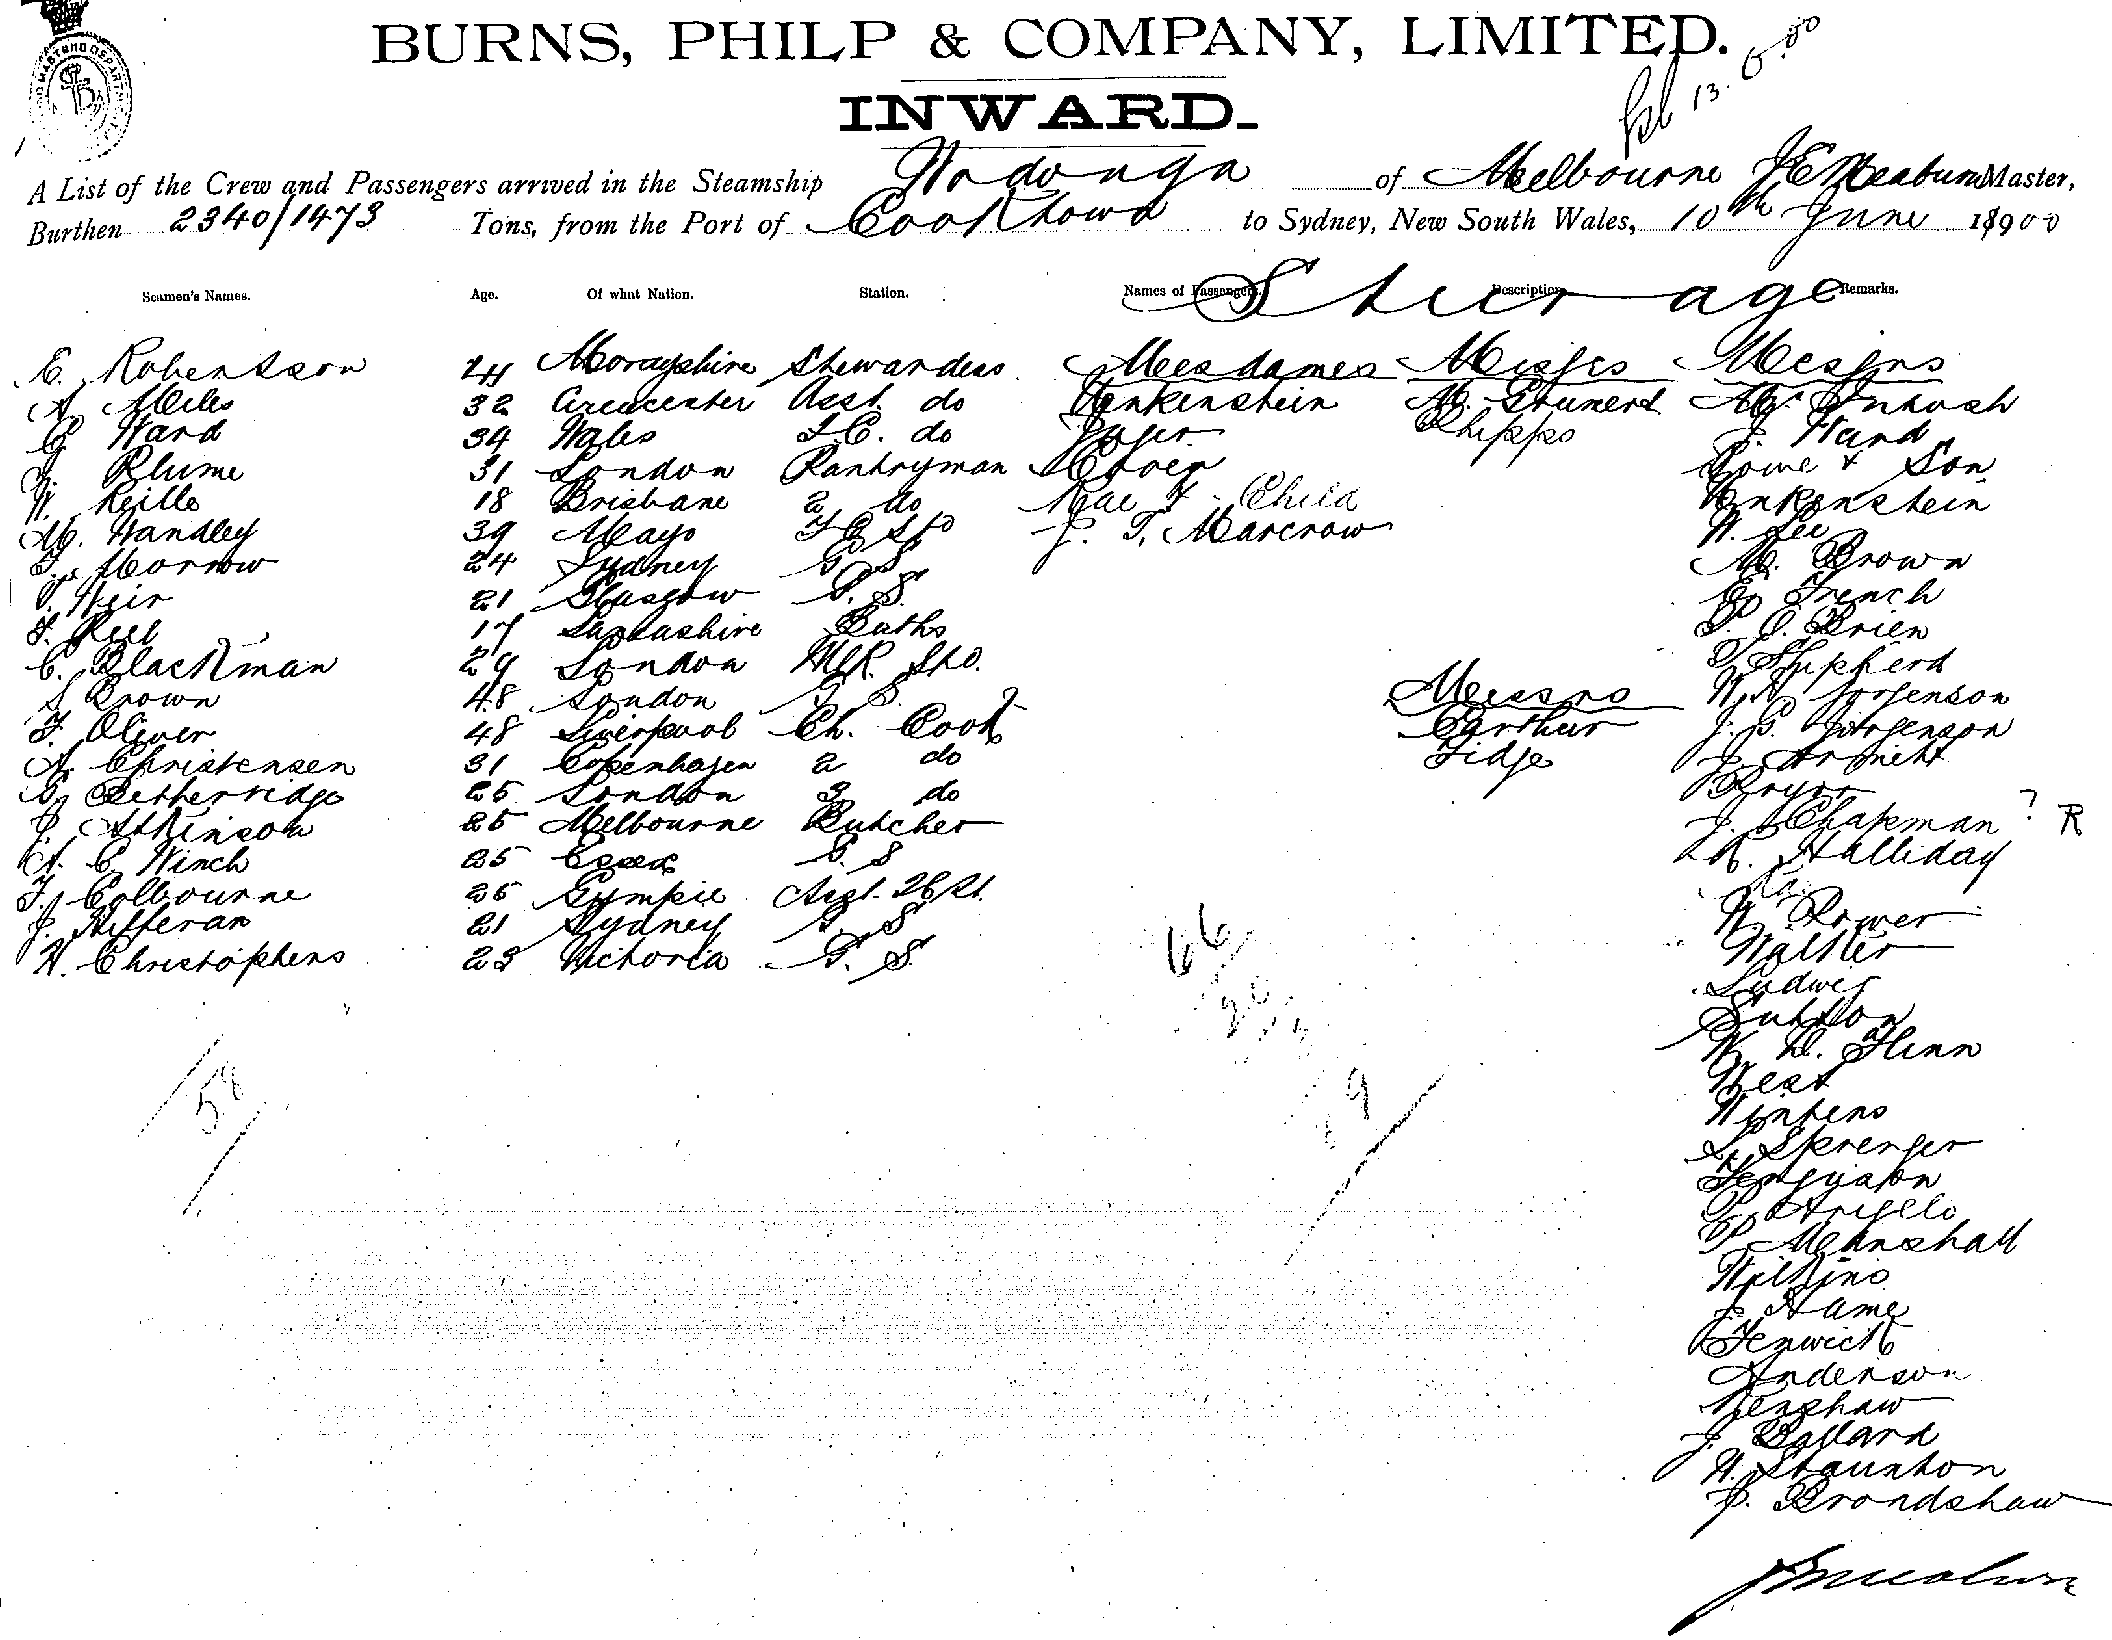 BURNS, PHILP & COMPANY, LIMITED.
INWARD.
A List of the Crew and Passengers arrived in the Steamship Wodonga of Melbourne J E Meaburn Master,
Burthen 2340/1473 Tons, from the Port of Cooktown to Sydney, New South Wales, 10th June 1900
Seamen's Names. Age. Of what Nation. Station. Names of Passengers. Description. Remarks.
Steerage
E. Robertson 24 Morayshire Stewardess Mesdames Misses Messrs
A. Miles 32 Cirencester Asst. do Venkenstein M. Grunert Mc Intosh
C. Ward 34 Wales F.C. do Phipps J. Ward
J. Blume 31 London Pantryman Rowe & Son
W. Reille 18 Brisbane 2 do Rae & Child Venkenstein
M. Handley 39 Mayo J. T. Marcrow W. Lee
T. Morrow 24 Sydney S M. Brown
T. Weir 21 Glasgow G. S. E. French
F. Peel 17 Lancashire Baths P. O. Brien
C. Blackman 29 London Shepherd
S Brown 48 London G. S Messrs Jorgenson
F. Oliver 48 Liverpool Ch. Cook Carthur J. C. Jorgenson
A. Christensen 31 Copenhagen 2 do Fidge
G. Petherridge 25 London 3 do
J. Atkinson 25 Melbourne Butcher J. Chapman ? R
A. C. Winch 25 Essex G. S R. Halliday
F. Colbourne 26 Gympie W. Power
J. Hifferan 21 Sydney S 66 Walker
W. Christophers 23 Victoria G. S. Ludwig
Sutton
W. D. Flinn
58 West
19 Winters
Sprenger
Ferguson
Angelo
Marshall
Wilkins
J. Hame
Fenwick
Anderson
Kershaw
J. Ballard
H. Staunton
J. Brondshaw